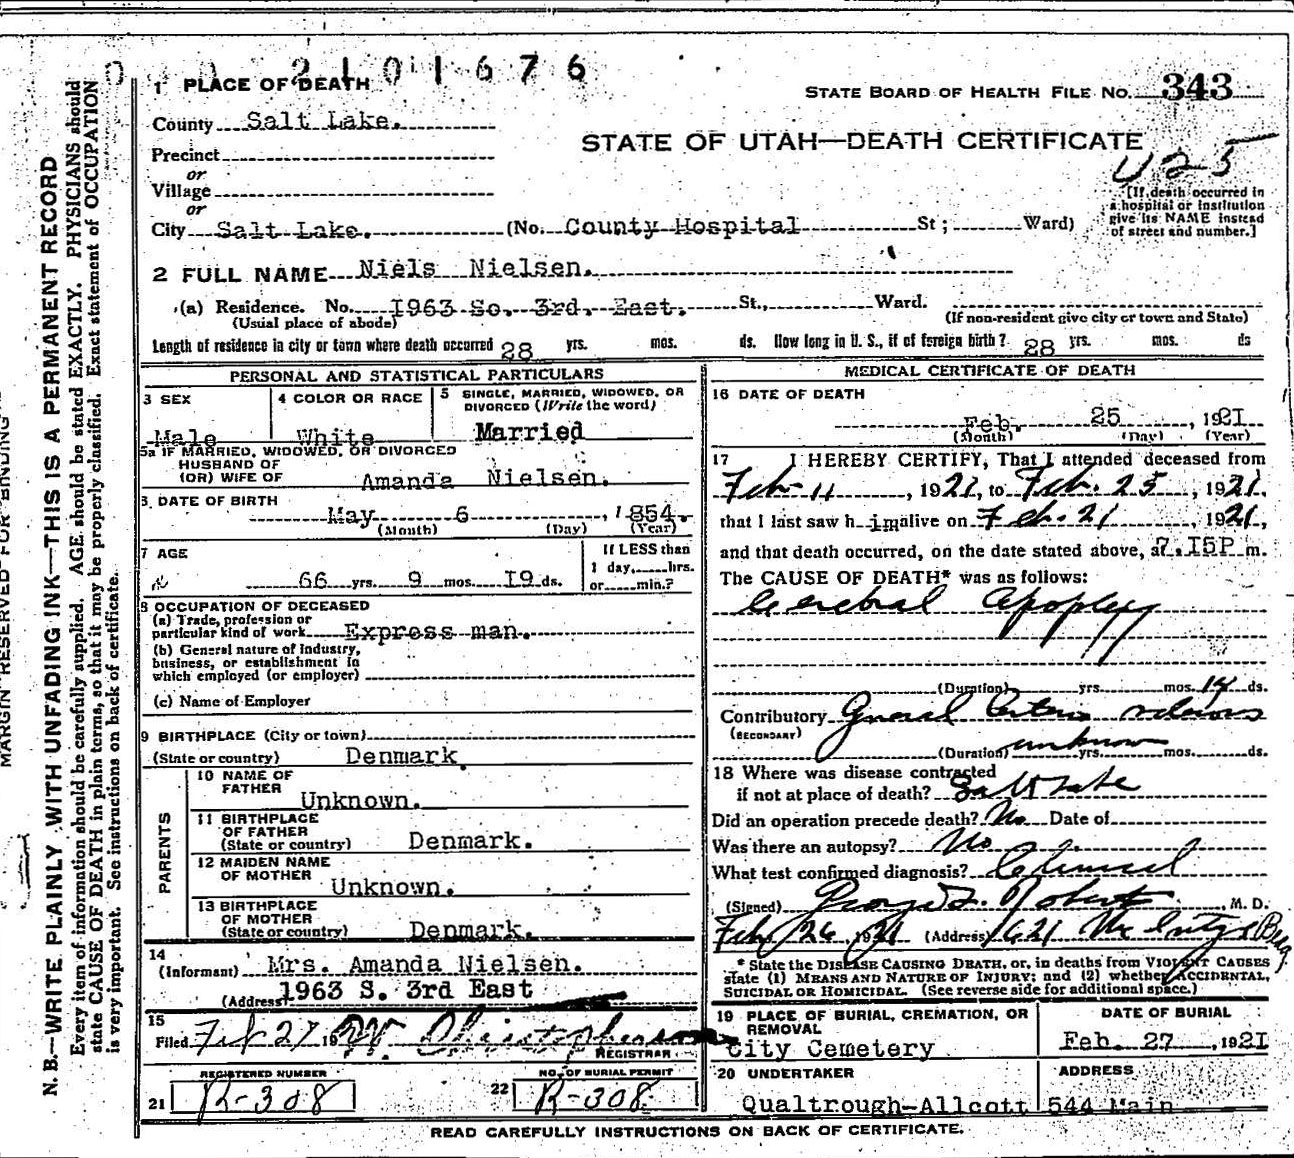 2101676
1 PLACE OF DEATH
STATE BOARD OF HEALTH FILE NO. 343
County Salt Lake.
STATE OF UTAH—DEATH CERTIFICATE
U25
Precinct
or
Village
or
City Salt Lake. (No. County Hospital St; Ward)
[If death occurred in
a hospital or institution
give its NAME instead
of street and number.]
2 FULL NAME Niels Nielsen.
(a) Residence. No. 1963 So. 3rd. East. St., Ward.
(Usual place of abode)
(If non-resident give city or town and State)
Length of residence in city or town where death occurred 28 yrs. mos. ds. How long in U. S., if of foreign birth? 28 yrs. mos. ds
PERSONAL AND STATISTICAL PARTICULARS
3 SEX
Male
4 COLOR OR RACE
White
5 SINGLE, MARRIED, WIDOWED, OR
DIVORCED (Write the word)
Married
5a IF MARRIED, WIDOWED, OR DIVORCED
HUSBAND OF
(OR) WIFE OF Amanda Nielsen.
6 DATE OF BIRTH
May 6, 1854.
(Month) (Day) (Year)
7 AGE
66 yrs. 9 mos. 19 ds.
If LESS than
1 day, hrs.
or min.?
8 OCCUPATION OF DECEASED
(a) Trade, profession or
particular kind of work Express man.
(b) General nature of Industry,
business, or establishment in
which employed (or employer)
(c) Name of Employer
9 BIRTHPLACE (City or town)
(State or country) Denmark.
PARENTS
10 NAME OF
FATHER
Unknown.
11 BIRTHPLACE
OF FATHER
(State or country) Denmark.
12 MAIDEN NAME
OF MOTHER
Unknown.
13 BIRTHPLACE
OF MOTHER
(State or country) Denmark.
14
(Informant) Mrs. Amanda Nielsen.
(Address) 1963 S. 3rd East
15
Filed Feb 27 19 W. Christopherson
REGISTRAR
REGISTERED NUMBER
21 R-308
NO. OF BURIAL PERMIT
22 R-308
MEDICAL CERTIFICATE OF DEATH
16 DATE OF DEATH
Feb. 25, 1921
(Month) (Day) (Year)
17 I HEREBY CERTIFY, That I attended deceased from
Feb-11, 1921, to Feb. 25, 1921,
that I last saw h im alive on Feb. 21, 1921,
and that death occurred, on the date stated above, at 7.15P m.
The CAUSE OF DEATH* was as follows:
Cerebral Apoplexy
(Duration) yrs. mos. 14 ds.
Contributory General Arterio sclerosis
(SECONDARY)
(Duration) unknown yrs. mos. ds.
18 Where was disease contracted
if not at place of death? Salt Lake
Did an operation precede death? No Date of
Was there an autopsy? No
What test confirmed diagnosis? Clinical
(Signed) George L. Roberts, M. D.
Feb 26 1921 (Address) 621 McIntyre Bldg.
* State the DISEASE CAUSING DEATH, or, in deaths from VIOLENT CAUSES
state (1) MEANS AND NATURE OF INJURY; and (2) whether ACCIDENTAL,
SUICIDAL OR HOMICIDAL. (See reverse side for additional space.)
19 PLACE OF BURIAL, CREMATION, OR
REMOVAL
City Cemetery
DATE OF BURIAL
Feb. 27, 1921
20 UNDERTAKER
Qualtrough-Allcott
ADDRESS
544 Main
READ CAREFULLY INSTRUCTIONS ON BACK OF CERTIFICATE.
MARGIN RESERVED FOR BINDING
N. B.—WRITE PLAINLY WITH UNFADING INK—THIS IS A PERMANENT RECORD
Every item of information should be carefully supplied. AGE should be stated EXACTLY. PHYSICIANS should
state CAUSE OF DEATH in plain terms, so that it may be properly classified. Exact statement of OCCUPATION
is very important. See instructions on back of certificate.